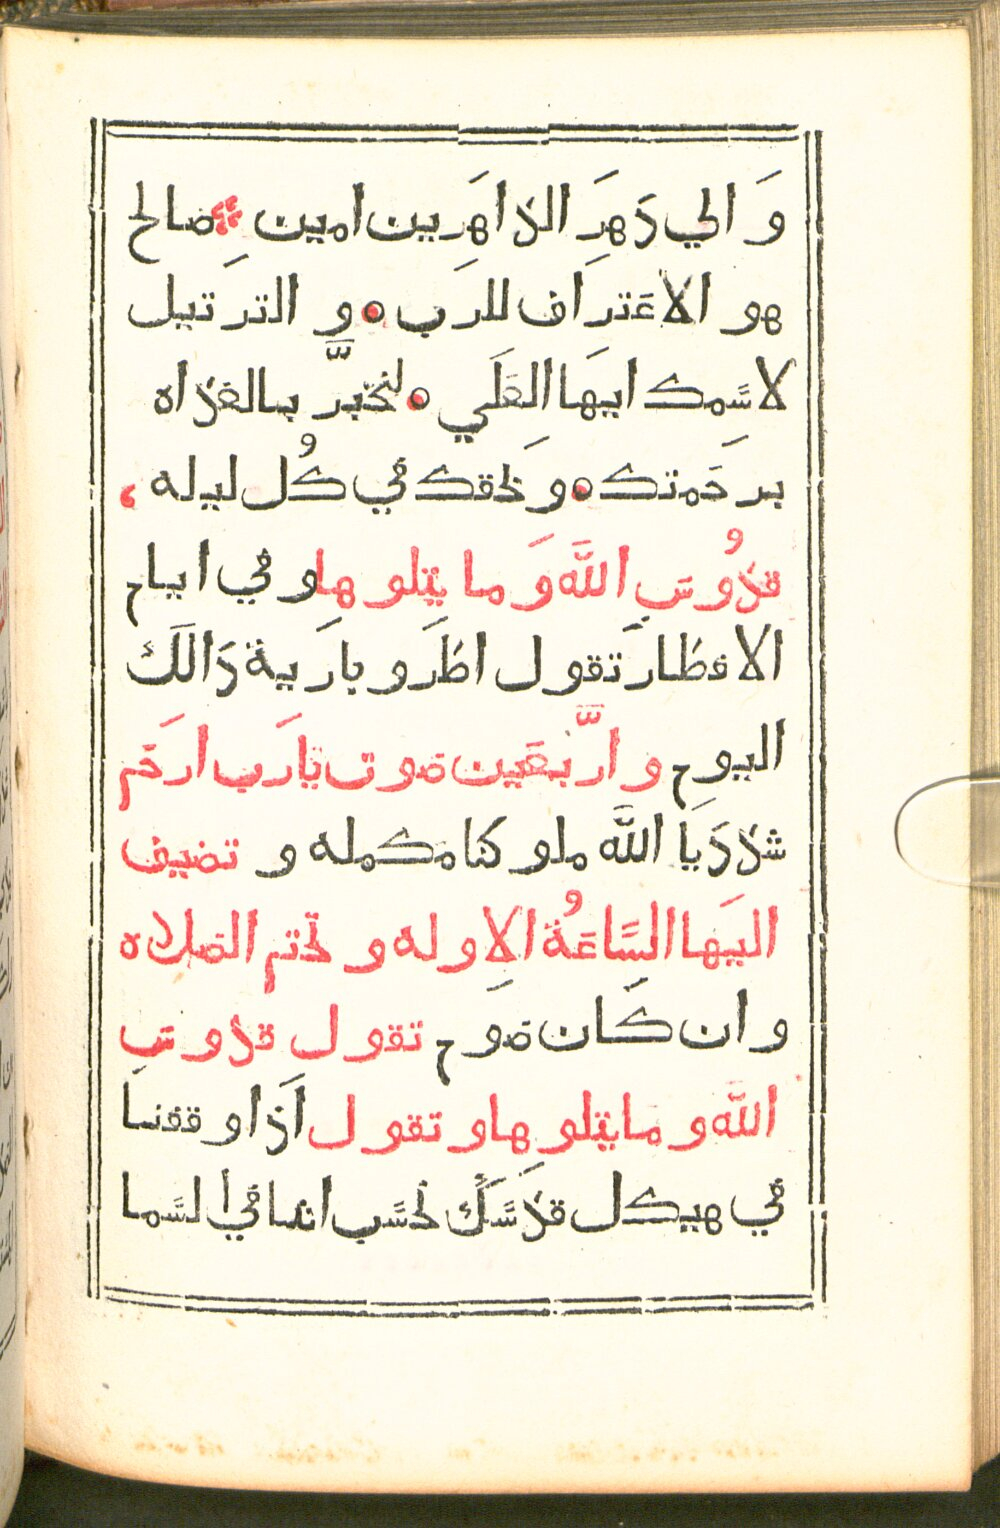 وَ الي دَهرِ الدَاهَرِين امين صَالح
هو الاعَترَاف للرَب و الترتيل
لاسَّمك ايهَا العَلَي لنخبَّر بالغدَاه
برحَمتك وَ لحقك في كُل ليله
قدُوسَ اللَّه وَ ما يتلوها و في ايام
الافطار تقول اطَرو بارية دَالَك
اليوم و ارَّبعَين صوت يارَب ارحَم
شددَ يا اللَّه ملو كنا مكمله و تضيف
اليهَا السَّاعَةُ الاوله و تختم الصَلاه
و ان كَان صوم تقول قدوسَ
اللَّه و مَا يتلوها و تقول اَذا وقفنا
في هيكل قدَسَّكَ نحسَّب اننا في السَّما